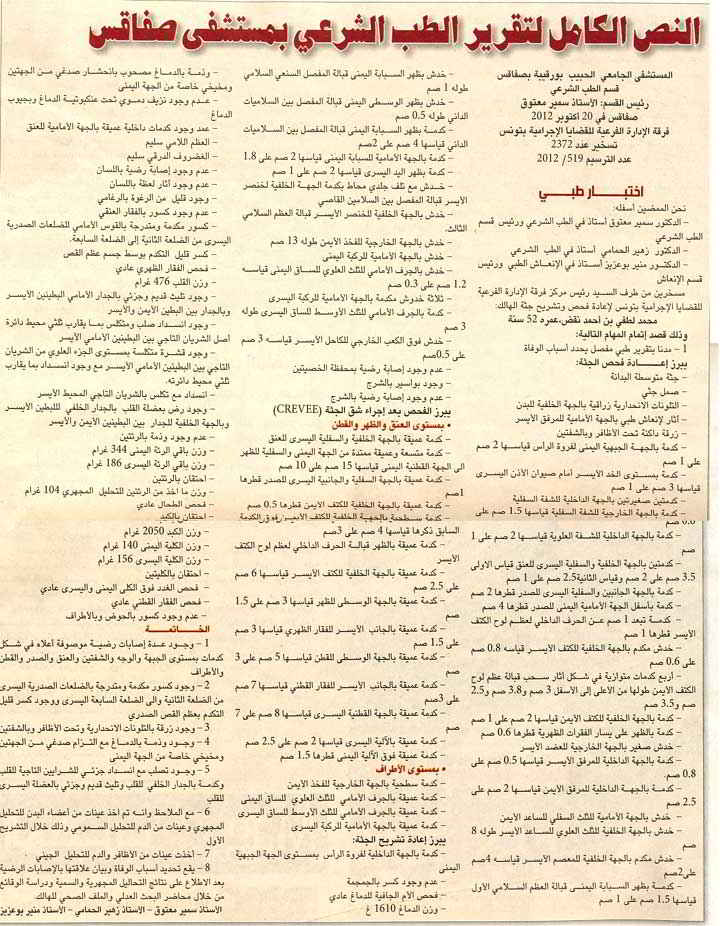 النص الكامل لتقرير الطب الشرعي بمستشفى صفاقس
المستشفى الجامعي الحبيب بورقيبة بصفاقس
قسم الطب الشرعي
رئيس القسم: الأستاذ سمير معتوق
صفاقس في 20 اكتوبر 2012
فرقة الإدارة الفرعية للقضايا الإجرامية بتونس
تسخير عدد 2372
عدد الترسيم 519/ 2012
اختبار طبي
نحن الممضين أسفله:
– الدكتور سمير معتوق أستاذ في الطب الشرعي ورئيس قسم
الطب الشرعي
– الدكتور زهير الحمامي أستاذ في الطب الشرعي
– الدكتور منير بوعزيز أستاذ في الإنعاش الطبي ورئيس
قسم الإنعاش
مسخرين من طرف السيد رئيس مركز فرقة الإدارة الفرعية
للقضايا الإجرامية بتونس لإعادة فحص وتشريح جثة الهالك:
محمد لطفي بن أحمد نقض، عمره 52 سنة
وذلك قصد إتمام المهام التالية:
1 – مدنا بتقرير طبي مفصل يحدد أسباب الوفاة
يبرز إعادة فحص الجثة:
– جثة متوسطة البدانة
– صمل جثي
– التلونات الانحدارية زراقية بالجهة الخلفية للبدن
– آثار لإنعاش طبي بالجهة الأمامية للمرفق الأيسر
– زرقة داكنة تحت الأظافر وبالشفتين
– كدمة بالجهة الجبهية اليمنى لفروة الرأس قياسها 2 صم
على 1 صم
– كدمة بمستوى الخد الأيسر أمام صيوان الأذن اليسرى
قياسها 3 صم على 1 صم
– كدمتين صغيرتين بالجهة الداخلية للشفة السفلية
– كدمة بالجهة الخارجية للشفة السفلية قياسها 1.5 صم على
0.6 صم
– كدمة بالجهة الداخلية للشفة العلوية قياسها 2 صم على 1
صم
– كدمتين بالجهة الخلفية والسفلية اليسرى للعنق قياس الاولى
3.5 صم على 2 صم وقياس الثانية 2.5 صم على 1 صم
– كدمة بالجهة الجانبين والسفلية اليسرى للصدر قطرها 2 صم
– كدمة بأسفل الجهة الأمامية اليمنى للصدر قطرها 4 صم
– كدمة تبعد 1 صم عن الحرف الداخلي لعظم لوح الكتف
الأيسر قطرها 1 صم
– خدش مكدم بالجهة الخلفية للكتف الأيسر قياسه 0.8 صم
على 0.6 صم
– أربع كدمات متوازية في شكل آثار سحب قبالة عظم لوح
الكتف الأيمن طولها من الاعلى إلى الأسفل 3 صم و3.8 صم و2.5
صم و3.5 صم
– كدمة بالجهة الخلفية للكتف الأيمن قياسها 2 صم على 1 صم
– كدمة بالظهر على يسار الفقرات الظهرية قطرها 0.6 صم
– خدش صغير بالجهة الخارجية للعضد الأيسر
– كدمة بالجهة الداخلية للمرفق الأيسر قياسها 0.5 صم على
0.8 صم.
– كدمة بالجهة الداخلية للمرفق الأيمن قياسها 2 صم على
2.5 صم
– خدش بالجهة الأمامية للثلث السفلي للساعد الأيمن
– خدش بالجهة الخلفية للثلث العلوي للساعد الأيسر طوله 8
صم
– خدش مكدم بالجهة الخلفية للمعصم الأيسر قياسه 4صم
على 2صم
– كدمة بظهر السبابة اليمنى قبالة العظم السلامي الأول
قياسها 1.5 صم على 1 صم
– خدش بظهر السبابة اليمنى قبالة المفصل السنعي السلامي
طوله 1 صم
– خدش بظهر الوسطى اليمنى قبالة المفصل بين السلاميات
الداني طوله 0.5 صم
– كدمة بظهر السبابة اليمنى قبالة المفصل بين السلاميات
الداني قياسها 4 صم على 2صم
– كدمة بالجهة الأمامية للسبابة اليمنى قياسها 2 صم على 1.8
– كدمة بظهر اليد اليسرى قياسها 2 صم على 1 صم
– خدش مع تلف جلدي محاط بكدمة الجهة الخلفية لخنصر
الأيسر قبالة المفصل بين السلامين القاصي
– خدش بالجهة الخلفية للخنصر الأيسر قبالة العظم السلامي
الثالث.
– خدش بالجهة الخارجية للفخذ الأيمن طوله 13 صم
– خدش بالجهة الأمامية للركبة اليمنى
– خدش بالحرف الأمامي للثلث العلوي للساق اليمنى قياسه
1.2 صم على 0.3 صم
– ثلاثة خدوش مكدمة بالجهة الأمامية للركبة اليسرى
– كدمة بالحرف الأمامي للثلث الأوسط للساق اليسرى طوله
3 صم
– خدش فوق الكعب الخارجي للكاحل الأيسر قياسه 3 صم
على 0.5صم
– عدم وجود إصابة رضية بمحفظة الخصيتين
– وجود بواسير بالشرج
– عدم وجود إصابة رضية بالشرج
يبرز الفحص بعد إجراء شق الجثة (CREVEE)
• بمستوى العنق والظهر والقطن
– كدمة عميقة بالجهة الخلفية والسفلية اليسرى للعنق
– كدمة متسعة وعميقة ممتدة من الجهة اليمنى والسفلية للظهر
الى الجهة القطنية اليمنى قياسها 15 صم على 10 صم
– كدمة عميقة بالجهة السفلية والجانبية اليسرى للصدر قطرها
1صم
– كدمة عميقة بالجهة الخلفية للكتف الأيمن قطرها 0.5 صم
– كدمة سطحية بالجهة الخلفية للكتف الأيسر فوق الكدمة
السابق ذكرها قياسها 4 صم على 3صم
– كدمة عميقة بالظهر قبالة الحرف الداخلي لعظم لوح الكتف
الأيسر
– كدمة عميقة بالجهة الخلفية للكتف الأيسر قياسها 6 صم
على 2.5 صم
– كدمة عميقة بالجهة الوسطى للظهر قياسها 3 صم على 1.5
صم
– كدمة عميقة بالجانب الأيسر للفقار الظهري قياسها 3 صم
على 1.5 صم
– كدمة عميقة بالجهة الوسطى للقطن قياسها 5 صم على 3
صم
– كدمة عميقة بالجانب الأيسر للفقار القطني قياسها 7 صم
على 3صم
– كدمة بالجهة القطنية اليسرى قياسها 8 صم على 7
صم
– كدمة بالألية اليسرى قياسها 2 صم على 2.5 صم
– كدمة عميقة فوق الألية اليمنى قطرها 1.5 صم
• بمستوى الأطراف
– كدمة سطحية بالجهة الخارجية للفخذ الأيمن
– كدمة عميقة بالحرف الأمامي للثلث العلوي للساق اليمنى
– كدمة عميقة بالحرف الأمامي للثلث الأوسط للساق اليسرى
– كدمة عميقة بالجهة الأمامية للركبة اليسرى
يبرز إعادة تشريح الجثة:
– كدمة بالجهة الداخلية لفروة الرأس بمستوى الجهة الجبهية
اليمنى
– عدم وجود كسر بالجمجمة
– فحص الأم الجافية للدماغ عادي
– وزن الدماغ 1610 غ
– وذمة بالدماغ مصحوب بانحشار صدغي من الجهتين
ومخيخي خاصة من الجهة اليمنى
– عدم وجود نزيف دموي تحت عنكبوتية الدماغ وبجيوب
الدماغ
– عدم وجود كدمات داخلية عميقة بالجهة الأمامية للعنق
– العظم اللامي سليم
– الغضروف الدرقي سليم
– عدم وجود إصابة رضية باللسان
– عدم وجود آثار لعظة باللسان
– وجود قليل من الرغوة بالرغامي
– عدم وجود كسور بالفقار العنقي
– كسور مكدمة ومتدرجة بالقوس الأمامي للضلعات الصدرية
اليسرى من الضلعة الثانية إلى الضلعة السابعة.
– كسر قليل التكدم بوسط جسم عظم القص
– فحص الفقار الظهري عادي
– وزن القلب 476 غرام
– وجود تثيث قديم وجزئي بالجدار الأمامي البطينين الأيسر
وبالجدار بين البطين الأيمن والأيسر
– وجود انسداد صلب ومتكلس بما يقارب ثلثي محيط دائرة
أصل الشريان التاجي بين البطينين الأمامي الأيسر
– وجود قشرة متكلسة بمستوى الجزء العلوي من الشريان
التاجي بين البطينين الأمامي الأيسر مع وجود انسداد بما يقارب
ثلثي محيط دائرته.
– انسداد مع تكلس بالشريان التاجي المحيط الأيسر
– وجود رض بعضلة القلب بالجدار الخلفي للبطين الأيسر
وبالجهة الخلفية للجدار بين البطينين الأيمن والأيسر
– عدم وجود وذمة بالرئتين
– وزن باقي الرئة اليمنى 344 غرام
– وزن باقي الرئة اليسرى 186 غرام
– احتقان بالرئتين
– وزن ما اخذ من الرئتين للتحليل المجهري 104 غرام
– فحص الطحال عادي
– احتقان بالكبد
– وزن الكبد 2050 غرام
– وزن الكلية اليمنى 140 غرام
– وزن الكلية اليسرى 156 غرام
– احتقان بالكليتين
– فحص الغدد فوق الكلى اليمنى واليسرى عادي
– فحص الفقار القطني عادي
– عدم وجود كسور بالحوض وبالأطراف
الخاتمة
1 – وجود عدة إصابات رضية موصوفة أعلاه في شكل
كدمات بمستوى الجبهة والوجه والشفتين والعنق والصدر والقطن
والأطراف
2 – وجود كسور مكدمة ومتدرجة بالضلعات الصدرية اليسرى
من الضلعة الثانية والى الضلعة السابعة اليسرى ووجود كسر قليل
التكدم بعظم القص الصدري
3 – وجود زرقة بالتلونات الانحدارية وتحت الأظافر وبالشفتين
4 – وجود وذمة بالدماغ مع التزام صدغي من الجهتين
ومخيخي خاصة من الجهة اليمنى
5 – وجود تصلب مع انسداد جزئي للشرايين التاجية للقلب
وكدمة بالجدار الخلفي للقلب وتثيث قديم وجزئي بالعضلة اليسرى
للقلب
6 – مع الملاحظ وانه تم اخذ عينات من أعضاء البدن للتحليل
المجهري وعينات من الدم للتحليل السمومي وذلك خلال التشريح
الأول
7 – أخذت عينات من الأظافر والدم للتحليل الجيني
8 – يقع تحديد أسباب الوفاة وبيان علاقتها بالإصابات الرضية
بعد الاطلاع على نتائج التحاليل المجهرية والسمية ودراسة الوقائع
من خلال محاضر البحث العدلي والملف الصحي للهالك.
الأستاذ سمير معتوق – الأستاذ زهير الحمامي – الأستاذ منير بوعزيز